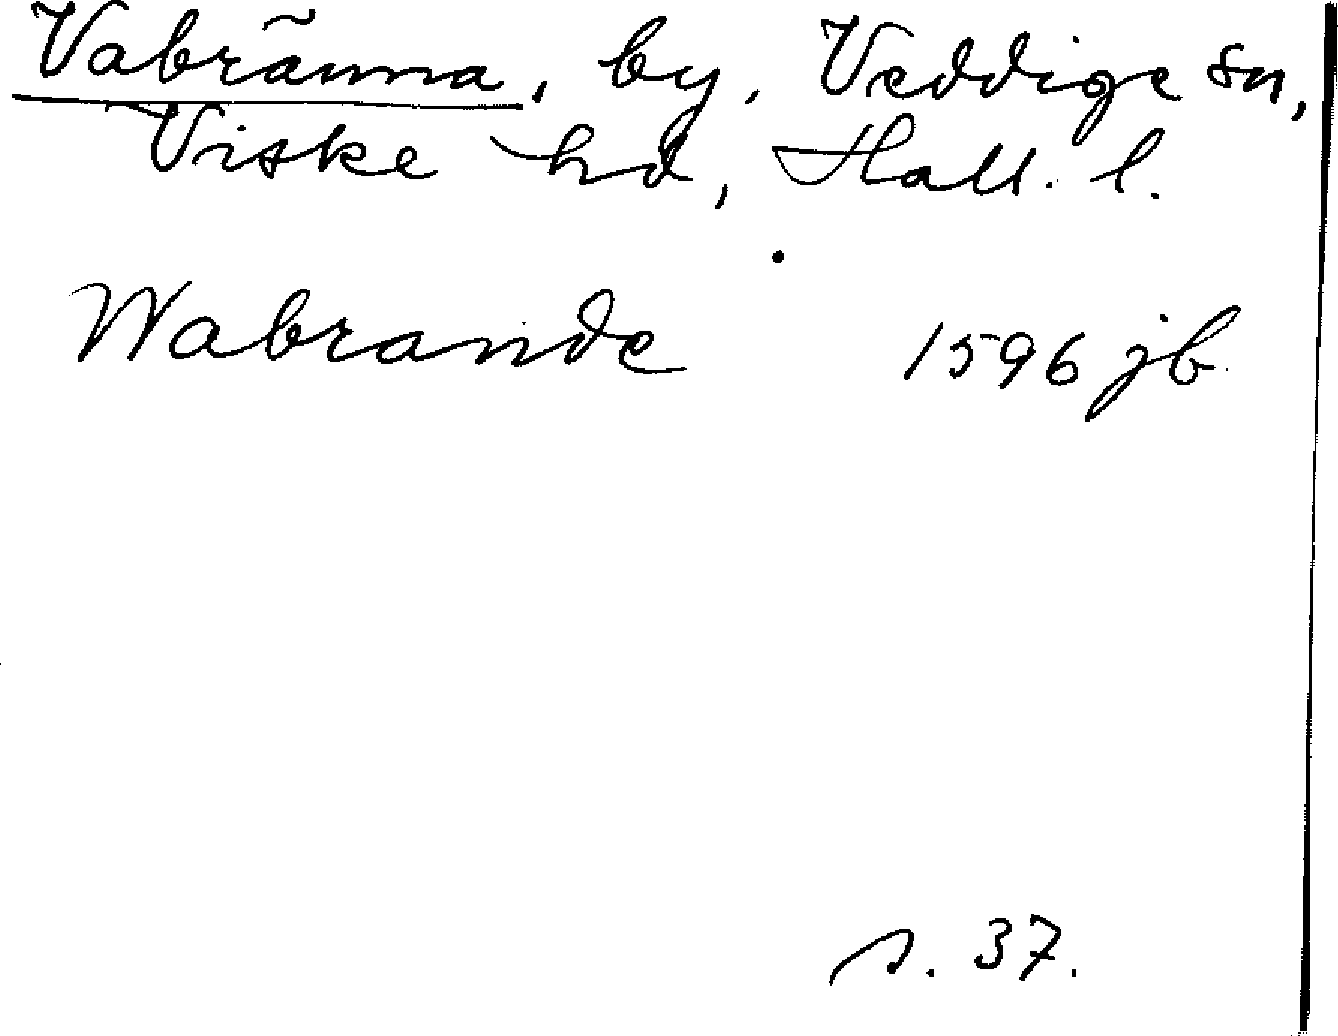 Vabränna, by, Veddige sn,
Viske hd, Hall. l.
Wabrande 1596 jb.
s. 37.